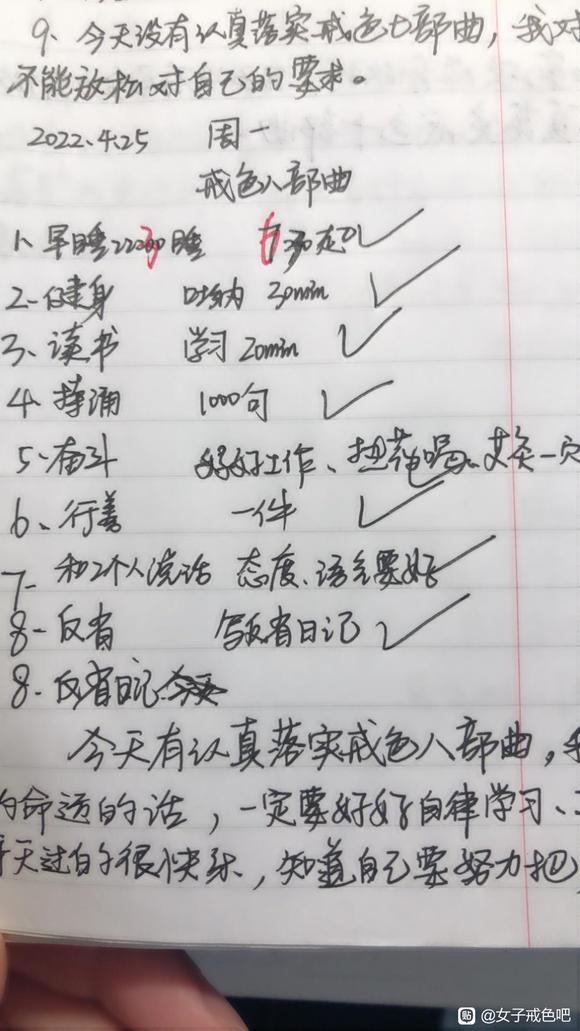 9、今天没有认真落实戒色七部曲，我对
不能放松对自己的要求。
2022.4.25 周一
戒色八部曲
1、早睡22:30睡 6:30起
2-健身 吐纳 30min
3、读书 学习20min
4、持诵 1000句
5、奋斗 好好工作、 艾灸一定
6、行善 一件
7- 和2个人说话 态度、语气要好
8-反省 写反省日记
8-反省日记
今天有认真落实戒色八部曲，我
的命运的话，一定要好好自律学习、
天过的很快乐，知道自己要努力把
贴 @女子戒色吧